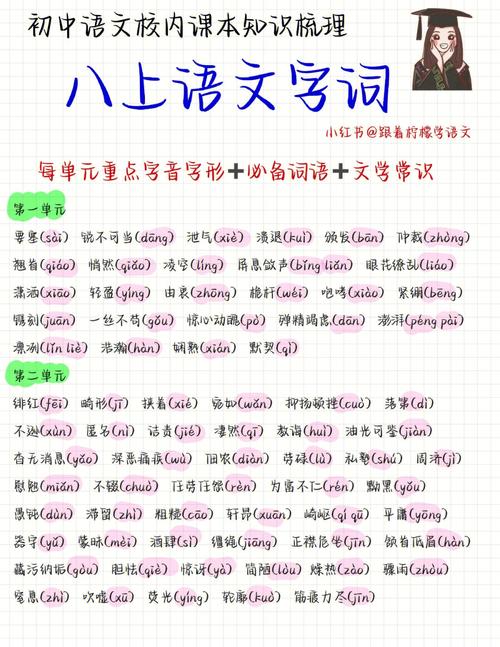 初中语文校内课本知识梳理
八上语文字词
小红书@跟着柠檬学语文
每单元重点字音字形+必备词语+文学常识
第一单元
要塞(sài) 锐不可当(dāng) 泄气(xiè) 溃退(kuì) 颁发(bān) 仲裁(zhòng)
翘首(qiáo) 悄然(qiǎo) 凌空(líng) 屏息敛声(bǐng liǎn) 眼花缭乱(liáo)
潇洒(xiāo) 轻盈(yíng) 由衷(zhōng) 桅杆(wéi) 咆哮(xiào) 紧绷(bēng)
镌刻(juān) 一丝不苟(gǒu) 惊心动魄(pò) 殚精竭虑(dān) 澎湃(péng pài)
凛冽(lǐn liè) 浩瀚(hàn) 娴熟(xián) 默契(qì)
第二单元
绯红(fēi) 畸形(jī) 挟着(xié) 宛如(wǎn) 抑扬顿挫(cuò) 落第(dì)
不逊(xùn) 匿名(nì) 诘责(jié) 凄然(qī) 教诲(huì) 油光可鉴(jiàn)
杳无消息(yǎo) 深恶痛疾(wù) 佃农(diàn) 劳碌(lù) 私塾(shú) 周济(jì)
慰勉(miǎn) 不辍(chuò) 任劳任怨(rèn) 为富不仁(rén) 黝黑(yǒu)
愚钝(dùn) 滞留(zhì) 粗糙(cāo) 轩昂(xuān) 崎岖(qí qū) 平庸(yōng)
器宇(yǔ) 蒙昧(mèi) 酒肆(sì) 缰绳(jiāng) 正襟危坐(jīn) 颔首低眉(hàn)
藏污纳垢(gòu) 胆怯(qiè) 惊讶(yà) 简陋(lòu) 燥热(zào) 骤雨(zhòu)
窒息(zhì) 吹嘘(xū) 荧光(yíng) 轮廓(kuò) 筋疲力尽(jīn)